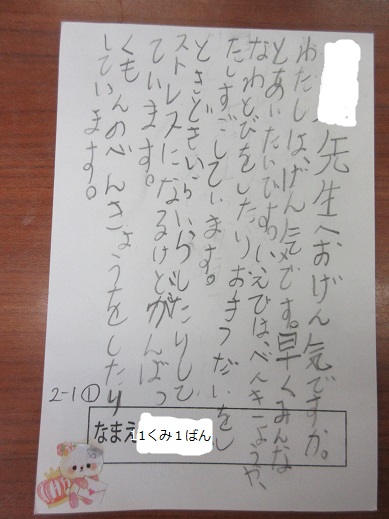 先生へおげん気ですか。
わたしは、げん気です。早くみんな
とあいたいです。いえではべんきょうや、
なわとびをしたりおきつだいをし
たしすごしています。
ときどきいらいらしたりして
ストレスになるけどがんばっ
ています。
くもんのべんきょうをしたり
しています。
2-1①
なまえ 1くみ1ばん